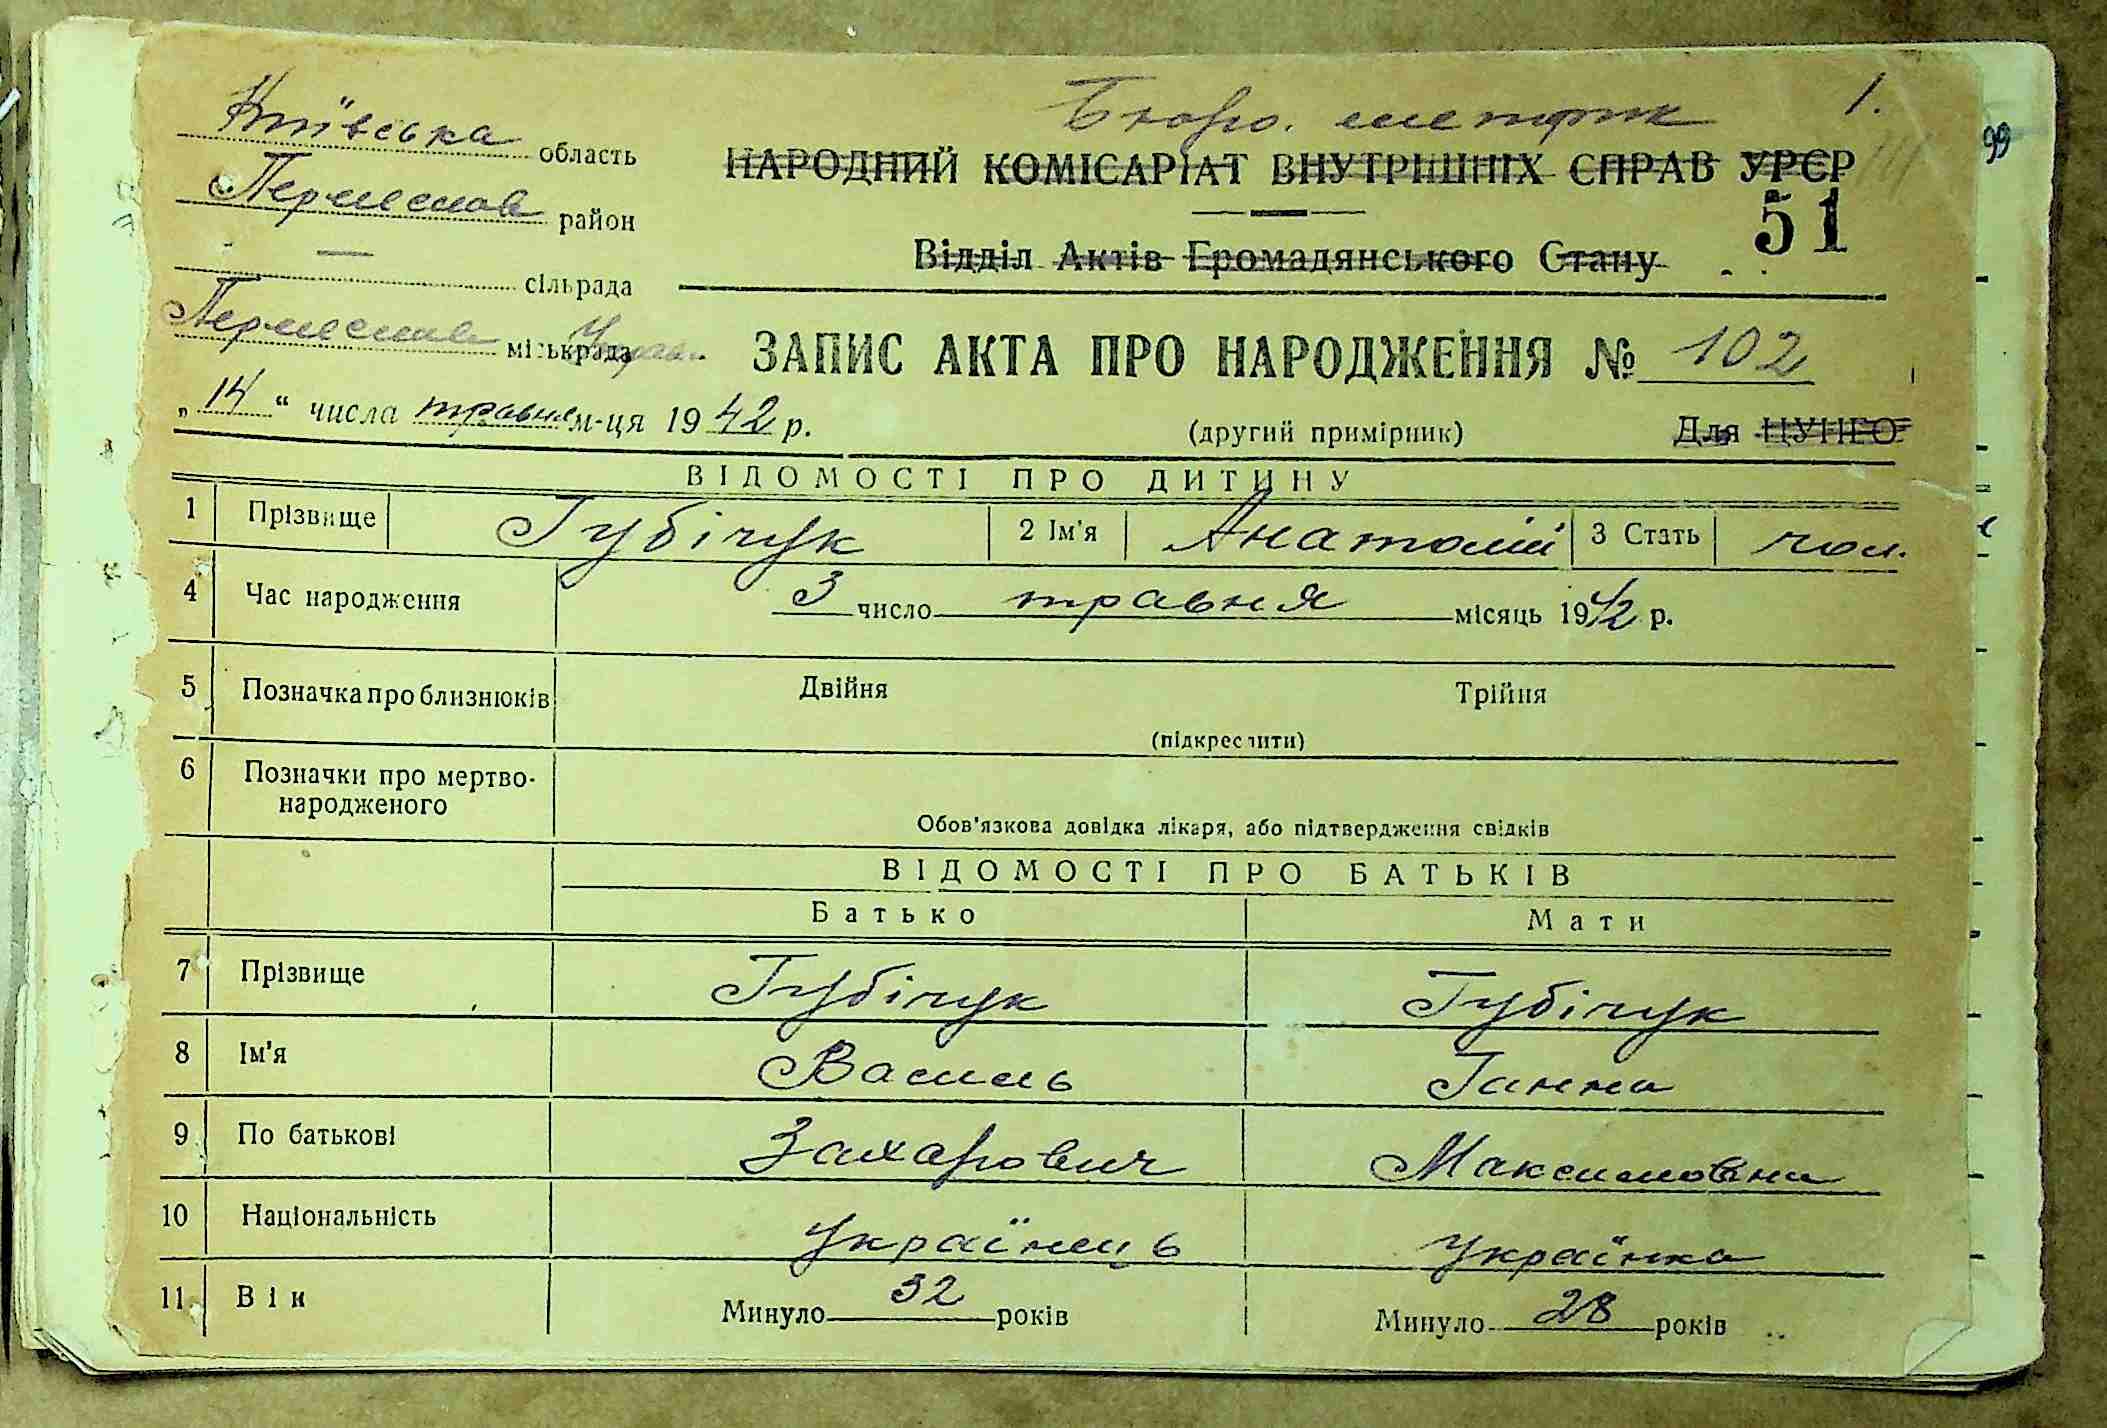 Бюро. метрик 1.
Київська область
НАРОДНИЙ КОМІСАРІАТ ВНУТРІШНІХ СПРАВ УРСР
99
Переяслав район
51
Відділ Актів Громадянського Стану
— сільрада
Переяслав міськрада Управ.
ЗАПИС АКТА ПРО НАРОДЖЕННЯ № 102
„14“ числа травня м-ця 1942 р.
(другий примірник) Для ЦУНГО
ВІДОМОСТІ ПРО ДИТИНУ
1 Прізвище Губічук 2 Ім'я Анатолій 3 Стать чол.
4 Час народження 3 число травня місяць 1942 р.
5 Позначка про близнюків Двійня Трійня
(підкреслити)
6 Позначки про мертво-
народженого
Обов'язкова довідка лікаря, або підтвердження свідків
ВІДОМОСТІ ПРО БАТЬКІВ
Батько Мати
7 Прізвище Губічук Губічук
8 Ім'я Василь Ганна
9 По батькові Захарович Максимовна
10 Національність Українець Українка
11 Вік Минуло 32 років Минуло 28 років